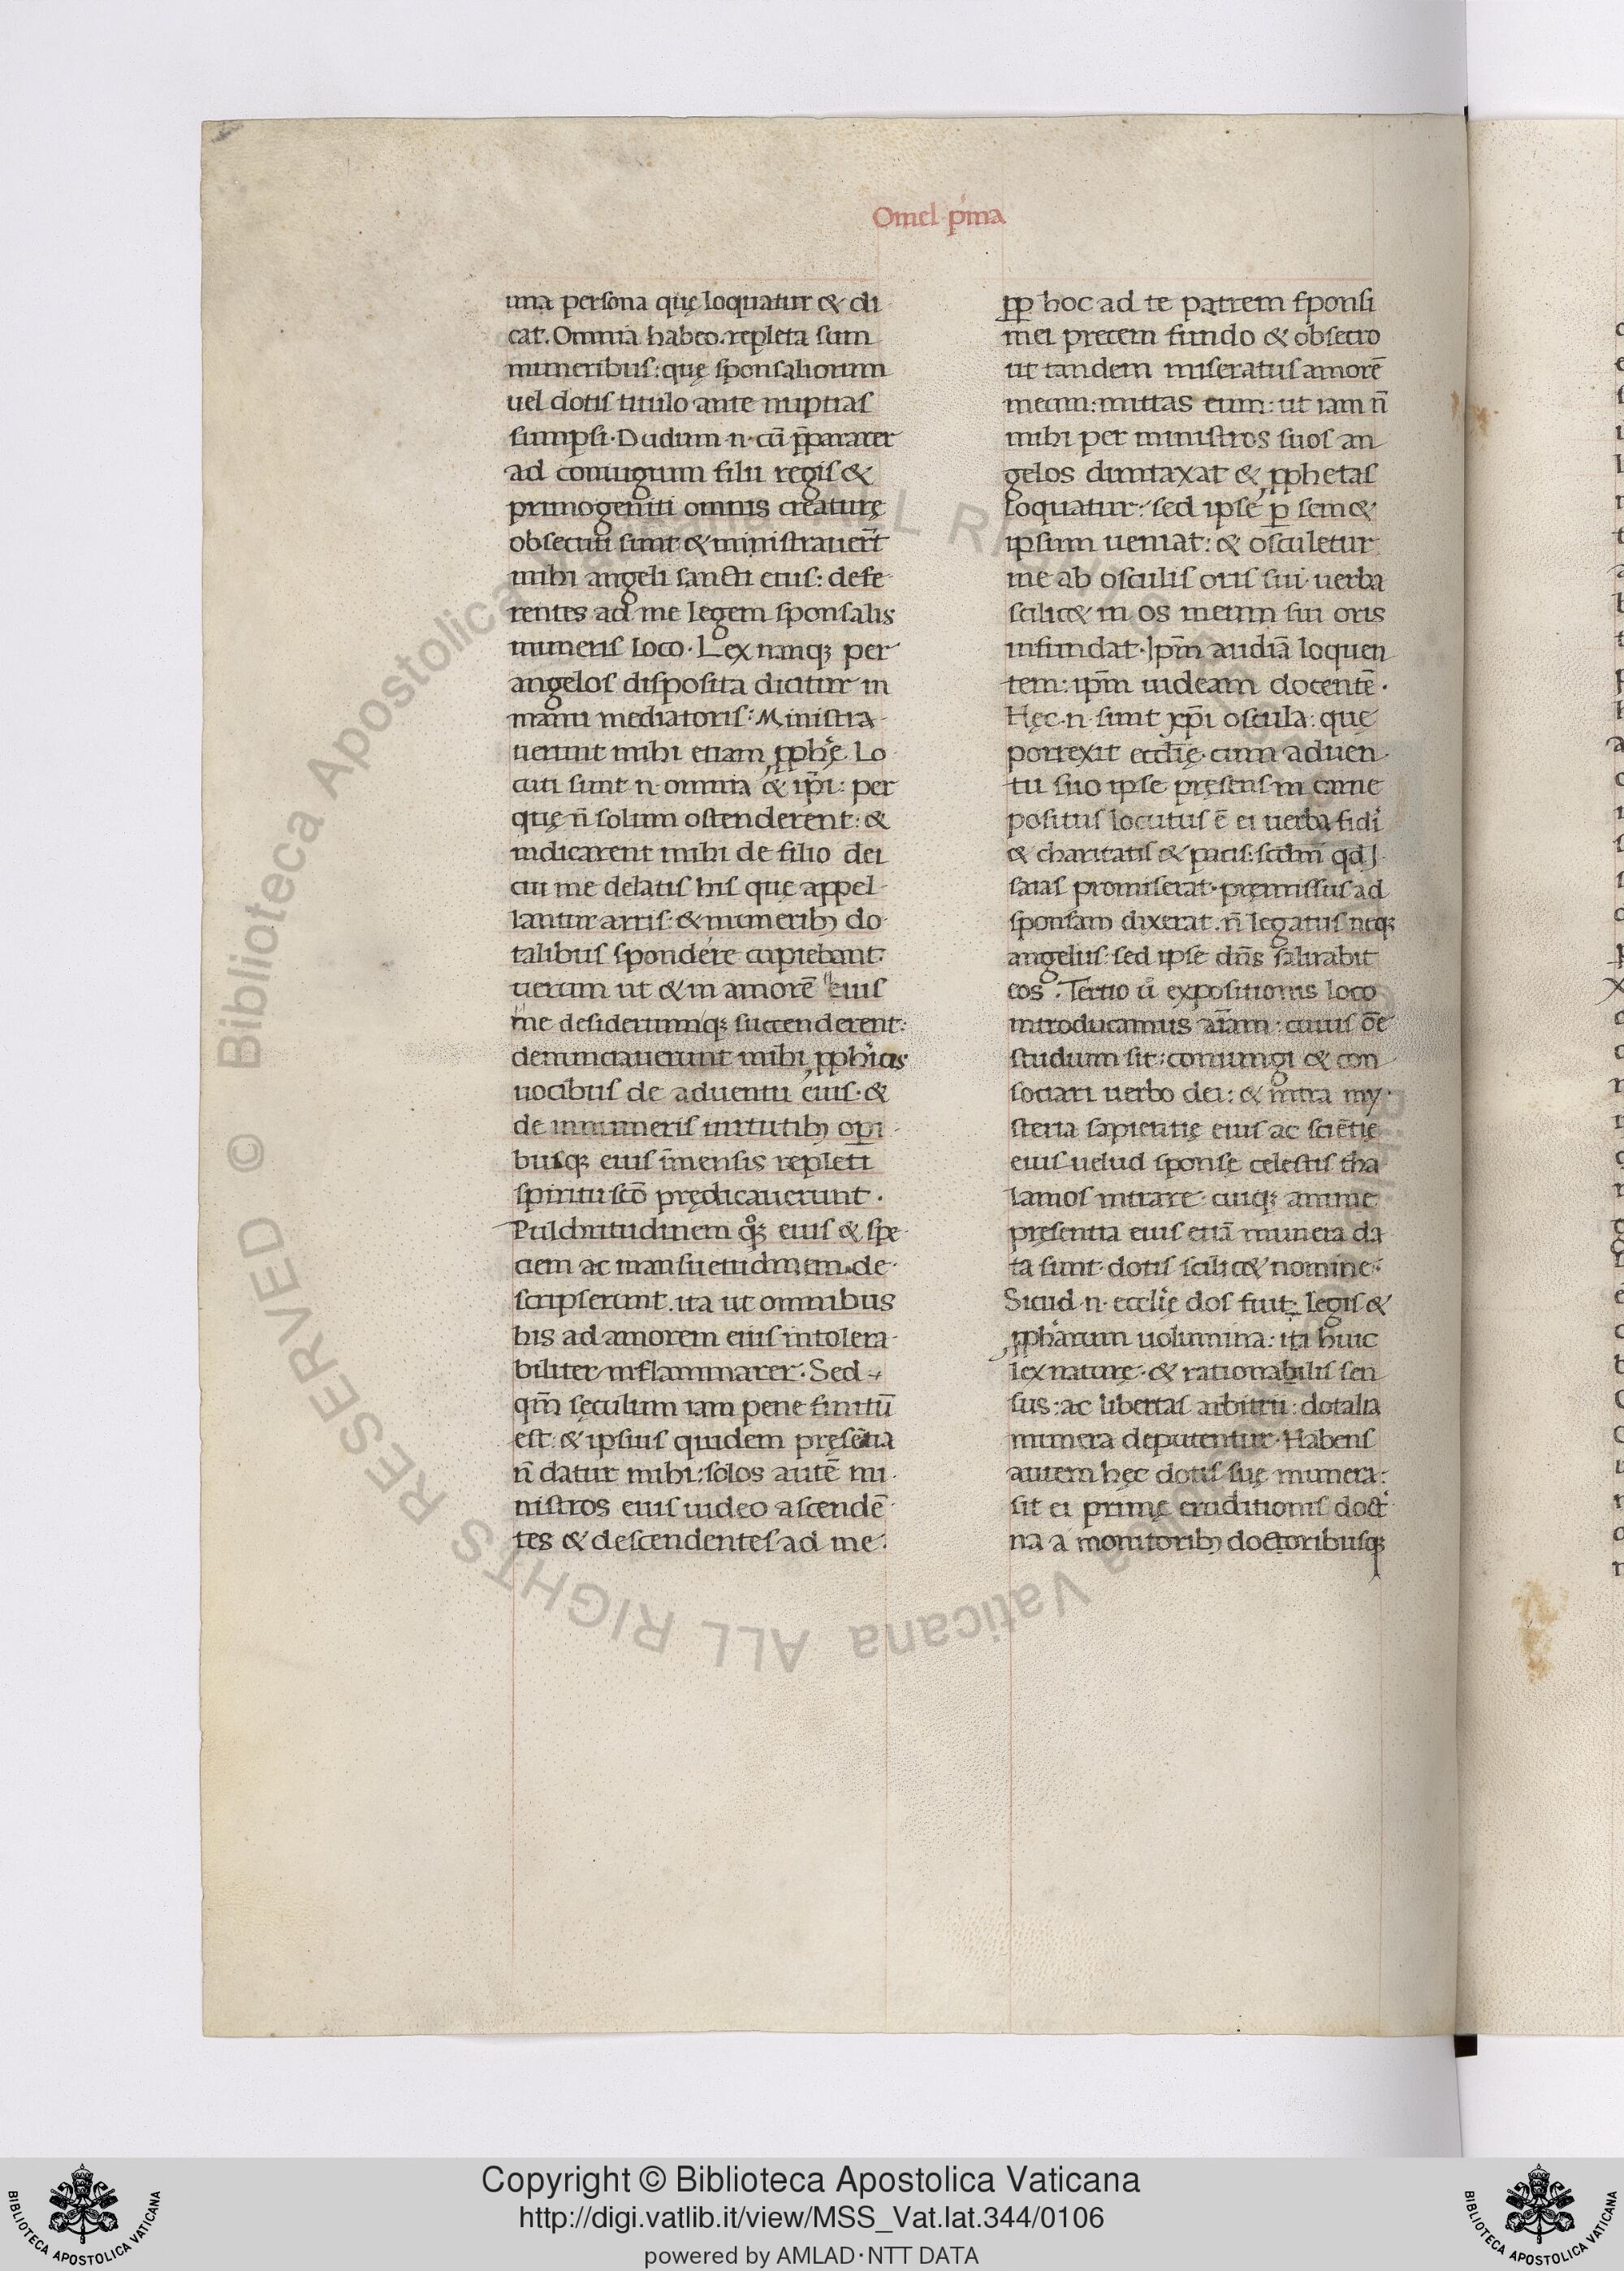 Omel p'ma
una persona quę loquatur & di
cat. Omnia habeo. repleta sum
muneribus: quę sponsaliorum
uel dotis titulo ante nuptias
sumpsi. Dudum n. cū p̄pararer
ad coniugium filii regis &
primogeniti omnis creaturę
obsecuti sunt & ministrauer̄t
mihi angeli sancti eius: defe
rentes ad me legem sponsalis
muneris loco. Lex nanq; per
angelos disposita dicitur in
manu mediatoris: Ministra
uerunt mihi etiam ꝓphę̄. Lo
cuti sunt n. omnia & ip̄i: per
quę n̄ solum ostenderent: &
indicarent mihi de filio dei
cui me delatis his quę appel
lantur arris: & munerib; do
talibus spondere cupiebant:
uerum ut & in amorē eius
me desideriumq; succenderent:
denunciauerunt mihi ꝓphicis
uocibus de aduentu eius. &
de innumeris uirtutib; opi
busq; eius īmensis repleti
spiritu scō prędicauerunt.
Pulchritudinem qq; eius & spe
ciem ac mansuetudinem de
scripserunt. ita ut omnibus
his ad amorem eius intolera
biliter inflammarer. Sed
qm̄ sęculum iam pene finitū
est: & ipsius quidem pręsētia
n̄ datur mihi: solos autē mi
nistros eius uideo ascendē
tes & descendentes ad me:
ꝓp hoc ad te patrem sponsi
mei precem fundo & obsecro
ut tandem miseratus amorē
meum: mittas eum: ut iam n̄
mihi per ministros suos an
gelos dumtaxat & ꝓphetas
loquatur: sed ipse ꝑ sem&
ipsum ueniat: & osculetur
me ab osculis oris sui. uerba
scilic& in os meum sui oris
infundat. Ip̄m audiā loquen
tem: ip̄m uideam docentē.
Hęc. n. sunt xp̄i oscula: quę
porrexit eccl̄ię. cum aduen
tu suo ipse pręsens in carne
positus locutus ē ei uerba fidi
& charitatis & pacis: scdm̄ qd I
saias promiserat. pręmissus ad
sponsam dixerat. n̄ legatus neq;
angelus: sed ipse dn̄s saluabit
eos. Tertio u̇ expositionis loco
introducamus aīam: cuius ōe
studium sit: coniungi & con
sociari uerbo dei: & intra my
steria sapientię eius ac sciētię
eius uelud sponsę celestis tha
lamos intrare: cuiq; animę
pręsentia eius etiā munera da
ta sunt. dotis scilic& nomine:
Sicud. n. eccl̄ię dos fuit: legis &
ꝓpharum uolumina: ita huic
lex naturę. & rationabilis sen
sus: ac libertas arbitrii: dotalia
munera deputentur. Habens
autem hęc dotis suę munera:
sit ei primę eruditionis doct
na a monitorib; doctoribusq;
Copyright © Biblioteca Apostolica Vaticana
http://digi.vatlib.it/view/MSS_Vat.lat.344/0106
powered by AMLAD·NTT DATA